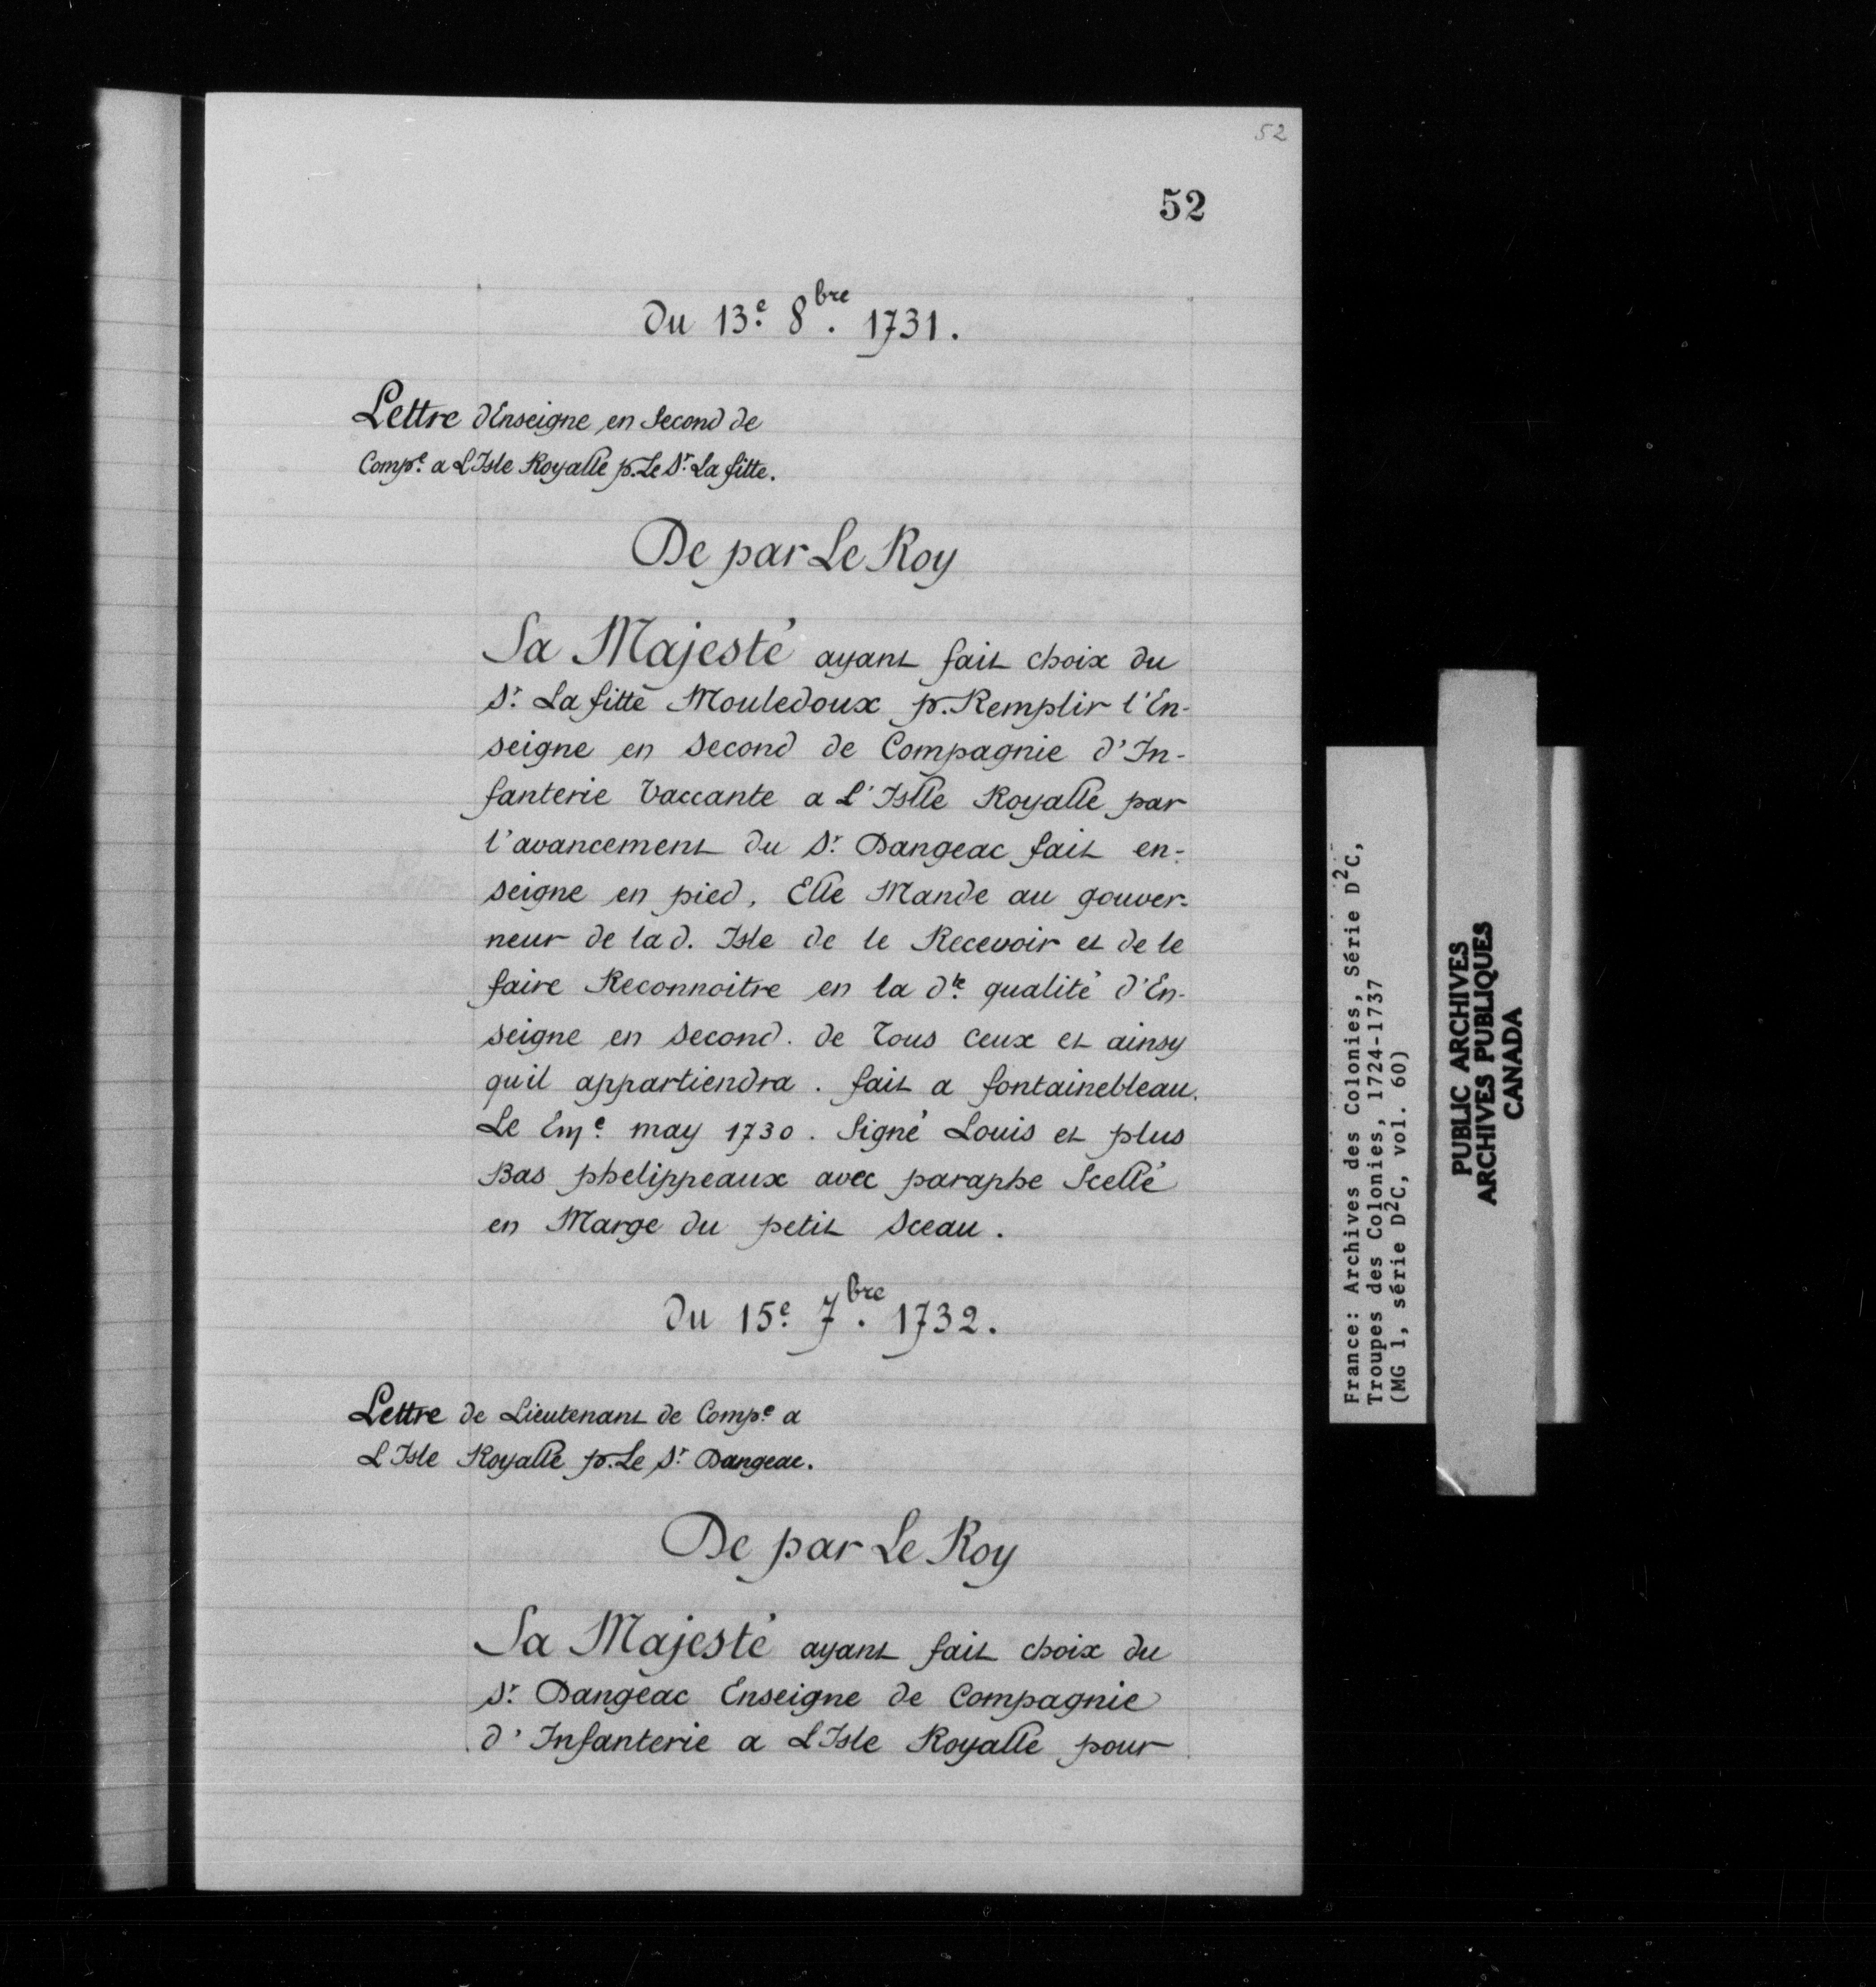 52
52
Du 13e. 8bre. 1731.
Lettre d'Enseigne en Second de
Compe. a L'Isle Royalle p. Le Sr. La fitte.
De par Le Roy
Sa Majesté ayant fait choix du
Sr. La fitte Mouledoux p. Remplir l'En-
seigne en Second de Compagnie d'In-
fanterie Vaccante a L'Islle Royalle par
l'avancement du Sr. Dangeac fait en-
seigne en pied, Elle Mande au gouver-
neur de lad. Isle de le Recevoir et de le
faire Reconnoitre en la dte. qualité d'En-
seigne en Second. de Tous Ceux et ainsy
qu'il appartiendra. fait a fontainebleau.
Le may 1730. Signé Louis et plus
Bas phelippeaux avec paraphe Scellé
en Marge du petit Sceau.
Du 15e. 7bre. 1732.
Lettre de Lieutenant de Compe. a
L'Isle Royalle p. Le Sr. Dangeac.
De par Le Roy
Sa Majesté ayant fait choix du
Sr. Dangeac Enseigne de Compagnie
d'Infanterie a L'Isle Royalle pour
France: Archives des Colonies, Série D2C,
Troupes des Colonies, 1724-1737
(MG 1, série D2C, vol. 60)
PUBLIC ARCHIVES
ARCHIVES PUBLIQUES
CANADA